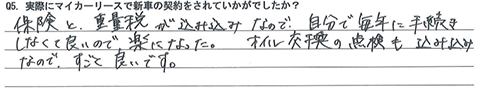 Q5. 実際にマイカーリースで新車の契約をされていかがでしたか？
保険と、重量税が込み込みなので、自分で毎年に手続き
しなくて良いので、楽になった。 オイル交換の点検も込み込み
なので、すごく良いです。